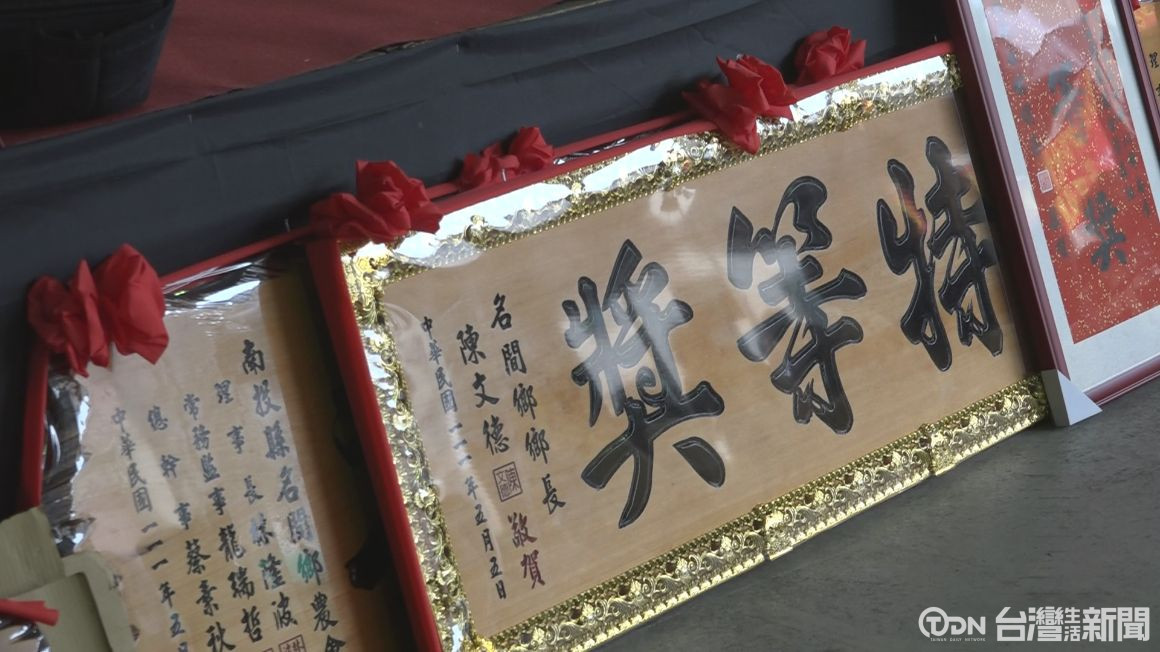 特等獎
名間鄉鄉長
陳文德
敬賀
中華民國一一一年五月五日
南投縣名間鄉農會
理事長
常務監事龍瑞哲
總幹事蔡素秋
中華民國一一一年五月
獎
TDN 台灣生活新聞
TAIWAN DAILY NETWORK